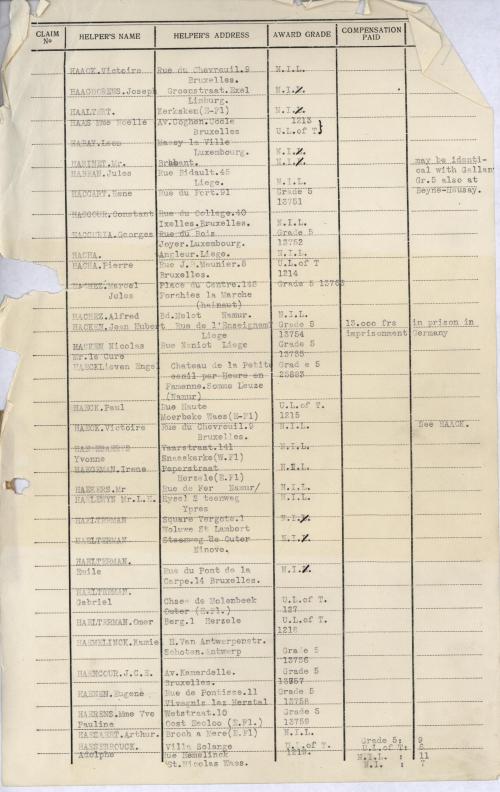 CLAIM No HELPER'S NAME HELPER'S ADDRESS AWARD GRADE COMPENSATION PAID
HAACK.Victoire Rue du Chevreuil.9 N.I.L.
Bruxelles.
HAAGDORENS.Joseph Groenstraat.Exel N.I.
Limburg.
HAALTERT. Kerksken(E-Fl) N.I.
HAAS Mme Noelle Av.Coghen.Uccle 1213
Bruxelles U.L.of T}
HABAY.Leon Massy la Ville
Luxembourg. N.I.
HABINET.Mr. Brabant. N.I. may be identi-
HABRAN.Jules Rue Bidault.45 cal with Gallan
Liege. N.I.L. Gr.5 also at
HACCART.Rene Rue du Fort.91 Grade 5 Beyne-Heusay.
13751
HACCOUR.Constant Rue du College.40
Ixelles.Bruxelles. N.I.L.
HACCURIA.Georges Rue du Bois Grade 5
Jeyer.Luxembourg. 13752
HACHA. Angleur.Liege. N.I.L.
HACHA.Pierre Rue J.B.Meunier.8 U.L.of T
Bruxelles. 1214
HACHEZ.Marcel Place du Centre.148 Grade 5 13753
Jules Forchies la Marche
(hainaut)
HACHEZ.Alfred Bd.Melot Namur. N.I.L.
HACKEN.Jean Hubert Rue de l'Enseignemt Grade 5 13.000 frs in prison in
Liege 13754 imprisonment Germany
HACKEN Nicolas Rue Naniot Liege Grade 5
Mr.le Cure 13735
HAECKLieven Engel Chateau de la Petite Grade 5
ocnil par Heure en 25883
Famenne.Somme Leuze
(Namur)
HAECK.Paul Rue Haute U.L.of T.
Moerbeke Waes(E-Fl) 1215
HAECK.Victoire Rue du Chevreuil.9 N.I.L. See HAACK.
Bruxelles.
Vaarstraat.141 N.I.L.
Yvonne Snaaskerke(W.Fl)
HAEGEMAN.Irene Paperstraat N.I.L.
Herzele(E.Fl)
HAEKERS.Mr Rue de Fer Namur/ N.I.L.
HAELEWYN Mr.L.H. Eysel S teenweg N.I.L.
Ypres
HAELTERMAN Square Vergote.1 N.I.
Woluwe St Lambert
HAELTERMAN Steenweg Op Outer N.I.
Ninove.
HAELTERMAN.
Emile Rue du Pont de la N.I.
Carpe.14 Bruxelles.
HAELTERMAN.
Gabriel Chsee de Molenbeek U.L.of T.
Outer (E.Fl.) 127
HAELTERMAN.Omer Berg.1 Herzele U.L.of T.
1216
HAEMELINCK.Kamiel H.Van Antwerpenstr.
Schoten.Antwerp Grade 5
13756
HAENCOUR.J.C.E. Av.Kamerdelle. Grade 5
Bruxelles. 13757
HAENEN.Eugene Rue de Pontisse.11 Grade 5
Vivegnis lez Herstal 13758
HAERENS.Mme Vve Wetstraat.10 Grade 5
Pauline Oost Eecloo (E.Fl.) 13759
HAESAERT.Arthur. Broch a Mere(E.Fl) N.I.L.
HAESEBROUCK. Villa Solange U.L.of T. Grade 5: 9
Adolphe Rue Hemelinck 1219. U.L.of T: 8
St.Nicolas Waes. N.I.L. : 11
N.I. : 7